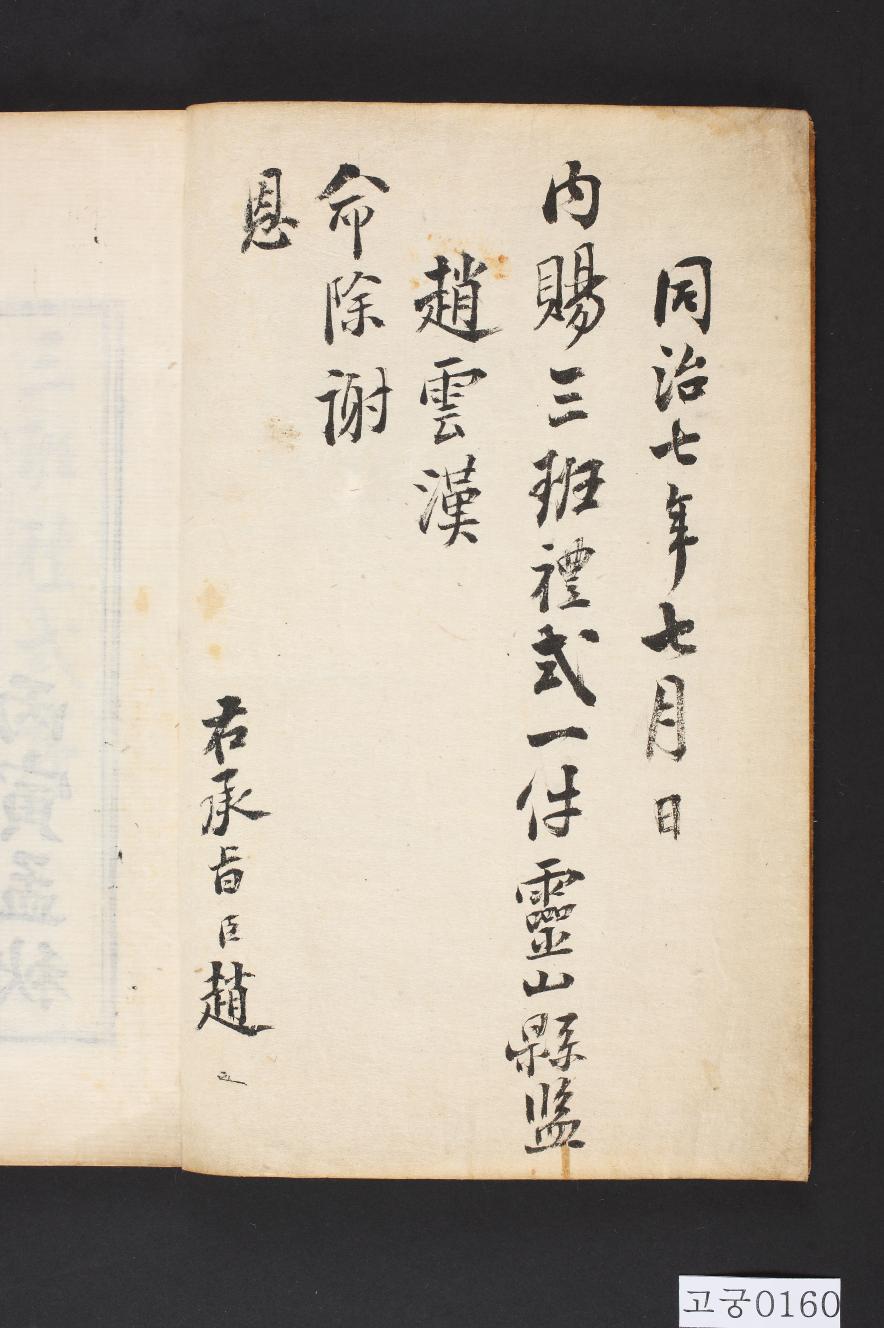 同治七年七月 日
內賜三班禮式一件靈山縣監
趙雲漢
命除謝
恩
右承旨臣趙
고궁0160